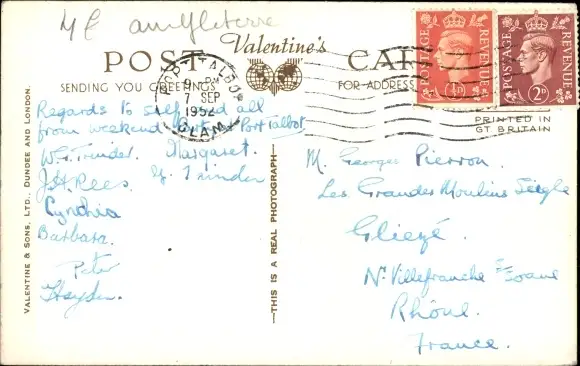 Angleterre
POST CARD
Valentine's
SENDING YOU GREETINGS
FOR ADDRESS
PORT TALBOT
9 PM
7 SEP
1952
GLAM
POSTAGE REVENUE
½D
POSTAGE REVENUE
2D
PRINTED IN
GT BRITAIN
Regards to self and all
from weekend Port Talbot
Margaret.
J.H. Rees.
Cynthia
Barbara.
Peter
Hayden.
VALENTINE & SONS, LTD., DUNDEE AND LONDON.
—THIS IS A REAL PHOTOGRAPH—
M. Georges Pierron.
Les Grandes Moulins Seigle
Gliezé.
Nr Villefranche s/Soane
Rhône.
France.